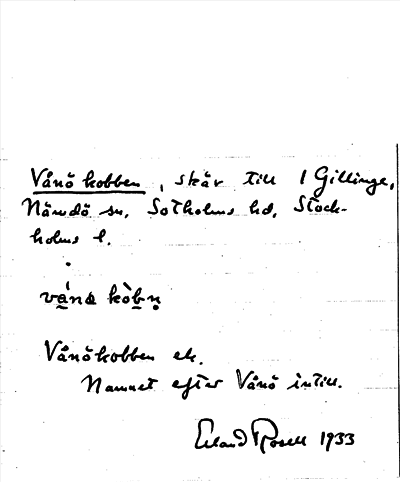 Vånökobben, skär till 1 Gillinge,
Nämdö sn, Sotholms hd, Stock-
holms l.
Vånökobben ek.
Namnet efter Vånö intill.
Erland Rosell 1933